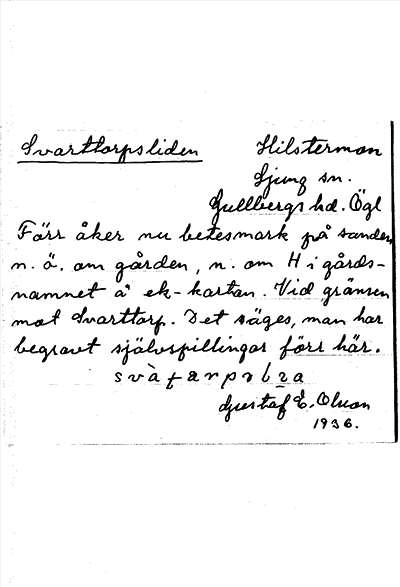 Svarttorpsliden Hilsterman
Ljung sn.
Gullbergs hd. Ögl
Förr åker nu betesmark på sanden
n. ö. om gården, n. om H i gårds-
namnet å ek-kartan. Vid gränsen
mot Svarttorp. Det säges, man har
begravt självspillingar förr här.
Gustaf E. Olson
1936.